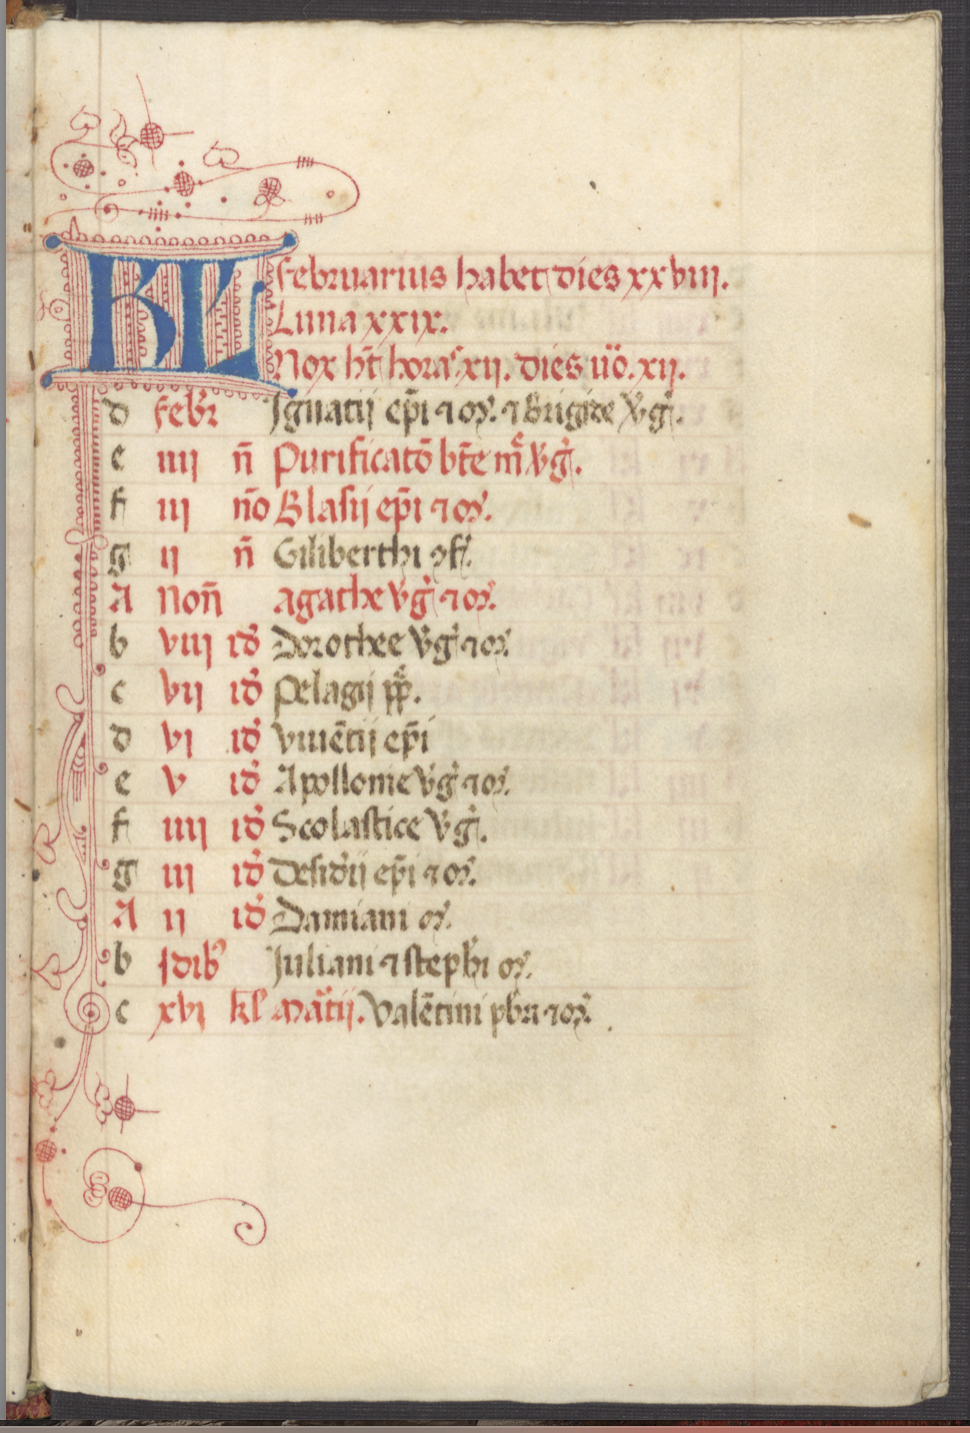 KL februarius habet dies xxviii.
Luna xxix.
Nox hn̄t horas xii. dies ūo. xii.
d febr̄ Ignatii ep̄i ⁊ mr̄. ⁊ Brigide v̄gi̇.
e iiii n̄ Purificatō bt̄e mr̄ v̄gi̇.
f iii no̅ Blasii ep̄i ⁊ mr̄.
g ii n̄ Giliberthi ꝯf.
A Non̄ agathe v̄gi̇ ⁊ mr̄.
b viii id̄ Dorothee v̄gi̇ ⁊ mr̄.
c vii id̄ Pelagii pp̄.
d vi id̄ Viuēcii ep̄i
e v id̄ Apollonie v̄gi̇ ⁊ mr̄.
f iiii id̄ Scolastice v̄gi̇.
g iii id̄ Desid̄ii ep̄i ⁊ mr̄.
A ii id̄ Damiani mr̄.
b Idib᷒ Juliani ⁊ steph̄i mr̄.
c xvi kl̄ mar̄tii. Valētini pb̄ri ⁊ mr̄.